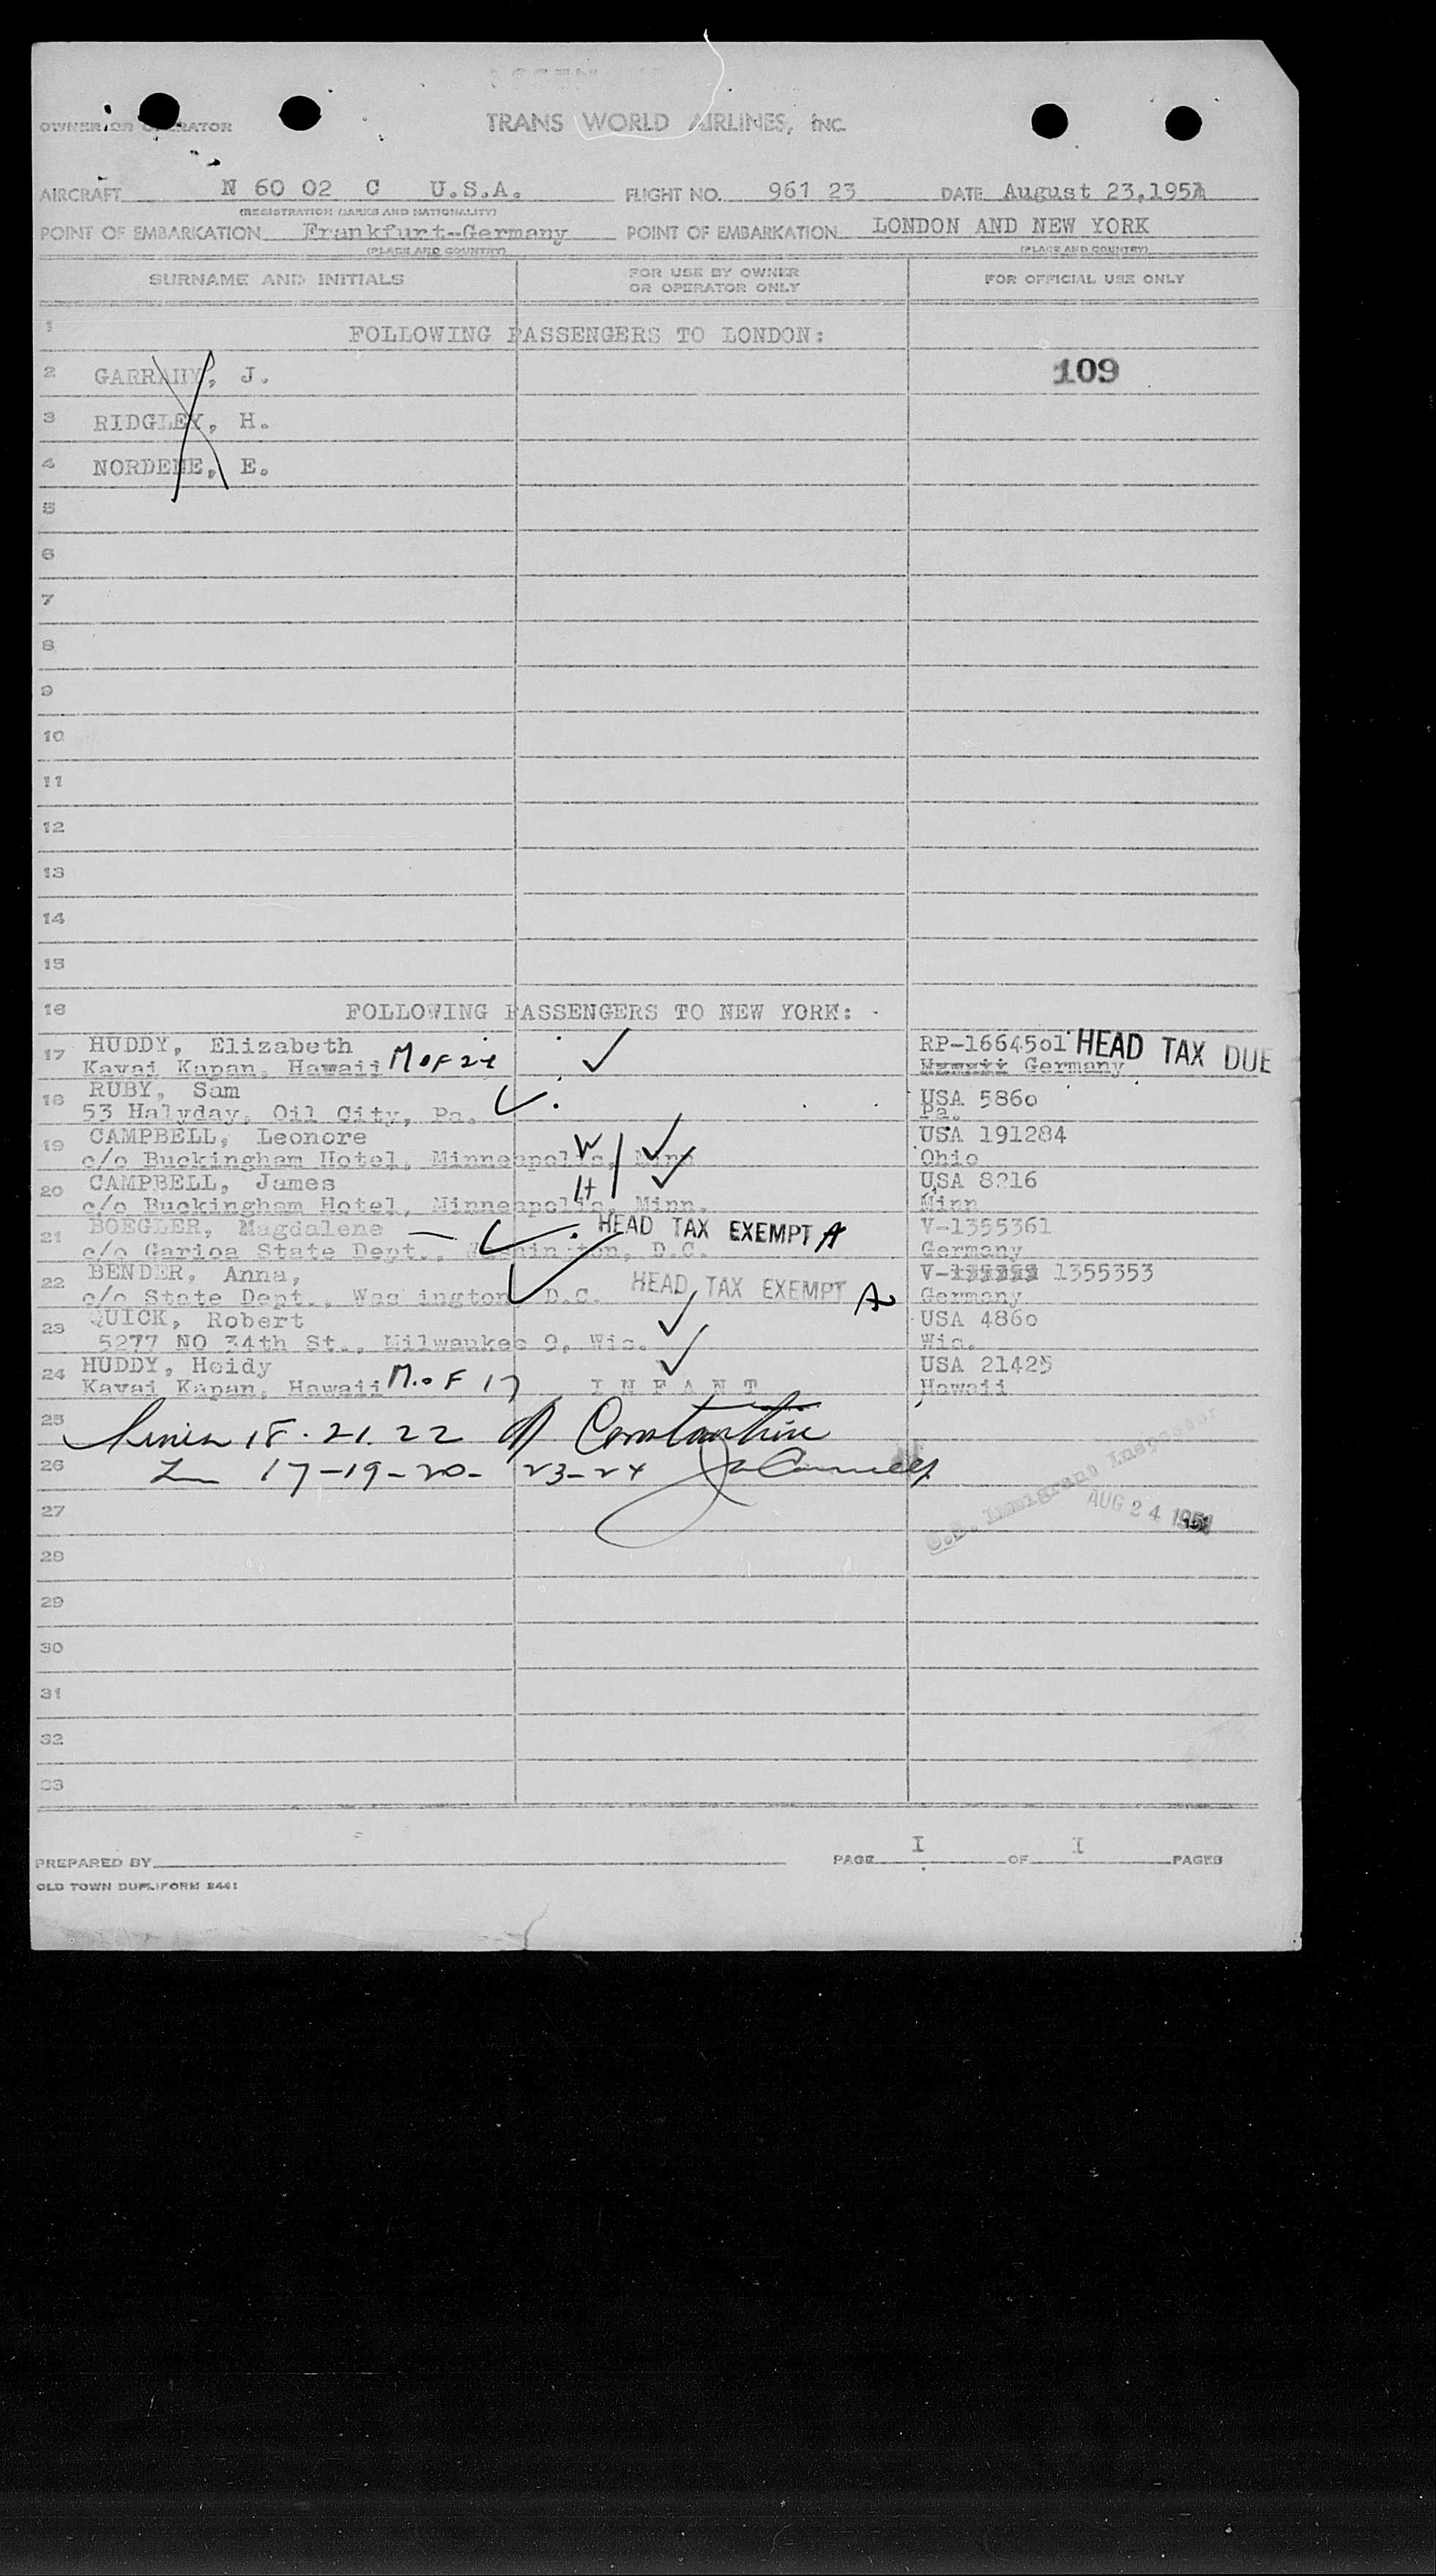 OWNER OR OPERATOR TRANS WORLD AIRLINES, INC.
AIRCRAFT N 60 02 C U.S.A. FLIGHT NO. 961 23 DATE August 23, 1951
(REGISTRATION MARKS AND NATIONALITY)
POINT OF EMBARKATION Frankfurt-Germany POINT OF EMBARKATION LONDON AND NEW YORK
(PLACE AND COUNTRY) (PLACE AND COUNTRY)
SURNAME AND INITIALS FOR USE BY OWNER OR OPERATOR ONLY FOR OFFICIAL USE ONLY
1 FOLLOWING PASSENGERS TO LONDON:
2 GARRAHY, J. 109
3 RIDGLEY, H.
4 NORDENE, E.
5
6
7
8
9
10
11
12
13
14
15
16 FOLLOWING PASSENGERS TO NEW YORK:
17 HUDDY, Elizabeth RP-1664501 HEAD TAX DUE
Kavai Kapan, Hawaii M of 24 Germany
18 RUBY, Sam USA 5860
53 Halyday, Oil City, Pa. Pa.
19 CAMPBELL, Leonore W USA 191284
c/o Buckingham Hotel, Minneapolis, Minn Ohio
20 CAMPBELL, James H USA 8216
c/o Buckingham Hotel, Minneapolis, Minn. Minn
21 BOEGLER, Magdalene HEAD TAX EXEMPT A V-1355361
c/o Garioa State Dept., Washington, D.C. Germany
22 BENDER, Anna, V- 1355353
c/o State Dept., Was ington, D.C. HEAD TAX EXEMPT A Germany
23 QUICK, Robert USA 4860
5277 NO 34th St., Milwaukee 9, Wis. Wis.
24 HUDDY, Heidy USA 21425
Kavai Kapan, Hawaii M. of 17 INFANT Hawaii
25 18. 21. 22 Constantine
26 17-19-20- 23-24
U.S. Immigrant Inspector
AUG 24 1951
27
28
29
30
31
32
33
PREPARED BY PAGE I OF I PAGES
OLD TOWN DUPLIFORM 2441